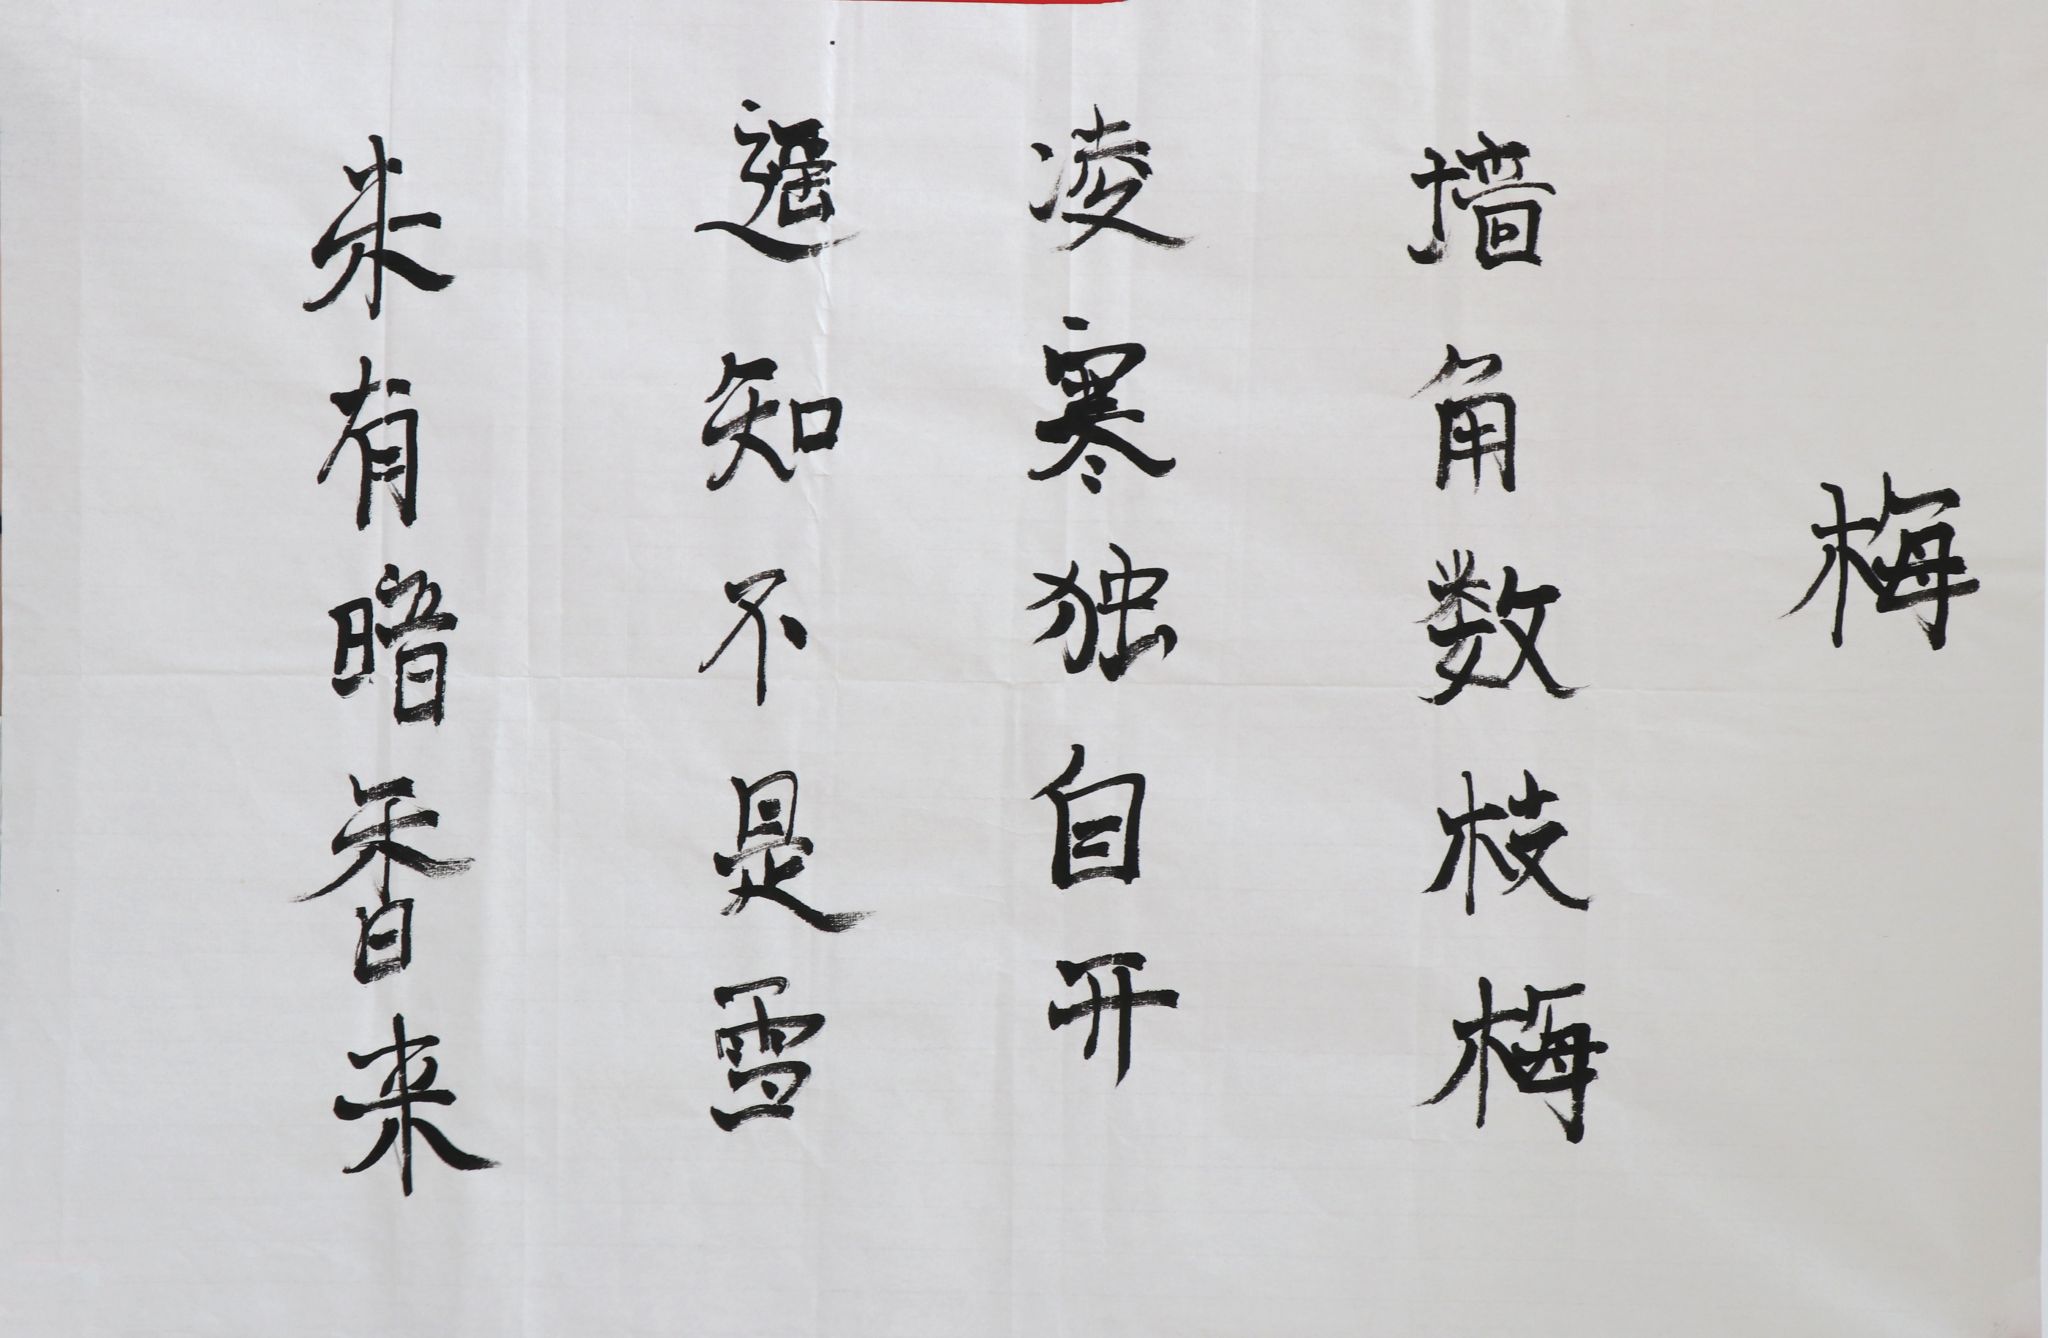 梅
墙角数枝梅
凌寒独自开
遥知不是雪
朱有暗香来